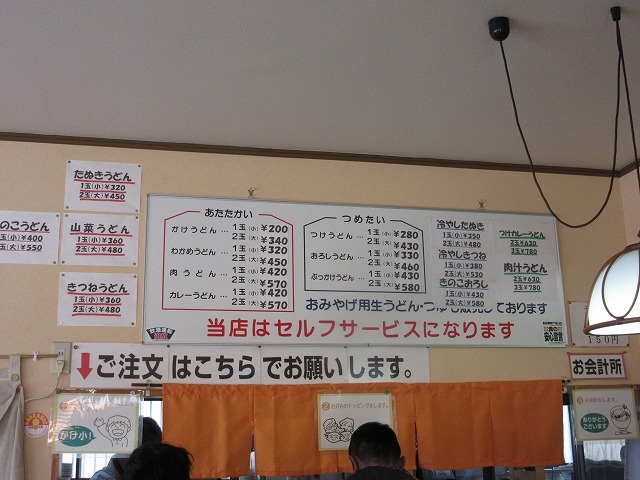 たぬきうどん
1玉(小)¥320
2玉(大)¥450
のこうどん
1玉(小)¥400
2玉(大)¥550
山菜うどん
1玉(小)¥360
2玉(大)¥480
きつねうどん
1玉(小)¥360
2玉(大)¥480
あたたかい
かけうどん … 1玉(小)¥200
2玉(大)¥340
わかめうどん … 1玉(小)¥320
2玉(大)¥450
肉うどん … 1玉(小)¥420
2玉(大)¥570
カレーうどん … 1玉(小)¥420
2玉(大)¥570
つめたい
つけうどん … 1玉(小)¥280
2玉(大)¥430
おろしうどん … 1玉(小)¥330
2玉(大)¥460
ぶっかけうどん … 1玉(小)¥430
2玉(大)¥580
冷やしたぬき
1玉(小)¥350
2玉(大)¥480
冷やしきつね
1玉(小)¥380
2玉(大)¥530
きのこおろし
1玉(小)¥430
2玉(大)¥580
つけカレーうどん
2玉¥630
3玉¥780
肉汁うどん
2玉¥630
3玉¥780
おみやげ用生うどん・つゆも販売しております
当店はセルフサービスになります
安心宣言
150円
↓ご注文はこちらでお願いします。
お会計所
かけ小!
②お好みのトッピングをします。
ありがとうございます